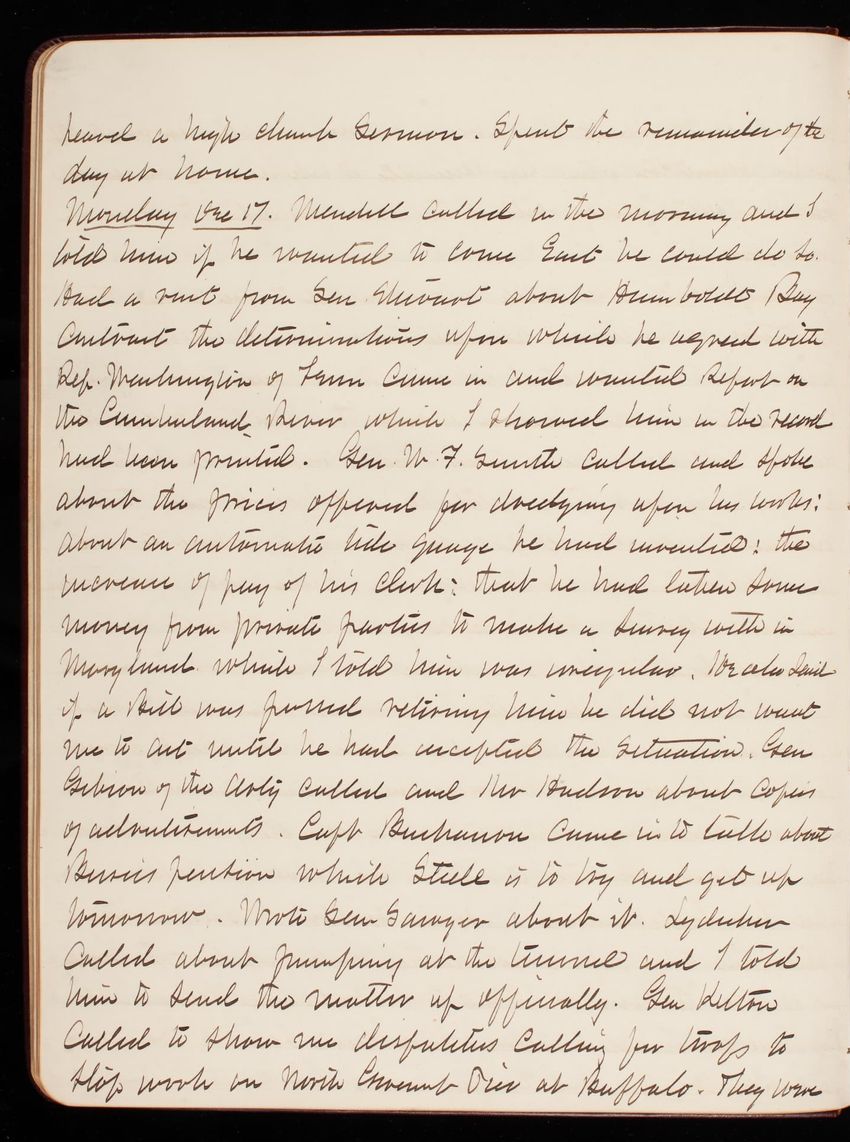 heard a high church Sermon. Spent the remainder of the
day at home.
Monday Dec 17. Mendell called in the morning and I
told him if he wanted to come East he could do so.
Had a visit from Gen Stewart about Humboldt Bay
Contract the determinations upon which he agreed with
Rep. Washington of Tenn came in and wanted Report on
the Cumberland River which I showed him in the record
had been printed. Gen. W. F. Smith called and spoke
about the prices offered for dredging upon his works:
about an automatic tide guage he had invented: the
increase of pay of his clerk: that he had taken some
money from private parties to make a survey with in
Maryland which I told him was irregular. He also said
if a Bill was passed retiring him he did not want
me to act until he had accepted the situation. Gen
Gibson of the Arty called and Mr Hudson about copies
of advertisements. Capt Buchanan came in to talk about
pension which Steele is to try and get up
tomorrow. Wrote Gen Sawyer about it. Lydecker
called about pumping at the tunnel and I told
him to send the matter up officially. Gen Kelton
called to show me dispatches calling for troops to
stop work on North Pier at Buffalo. They were